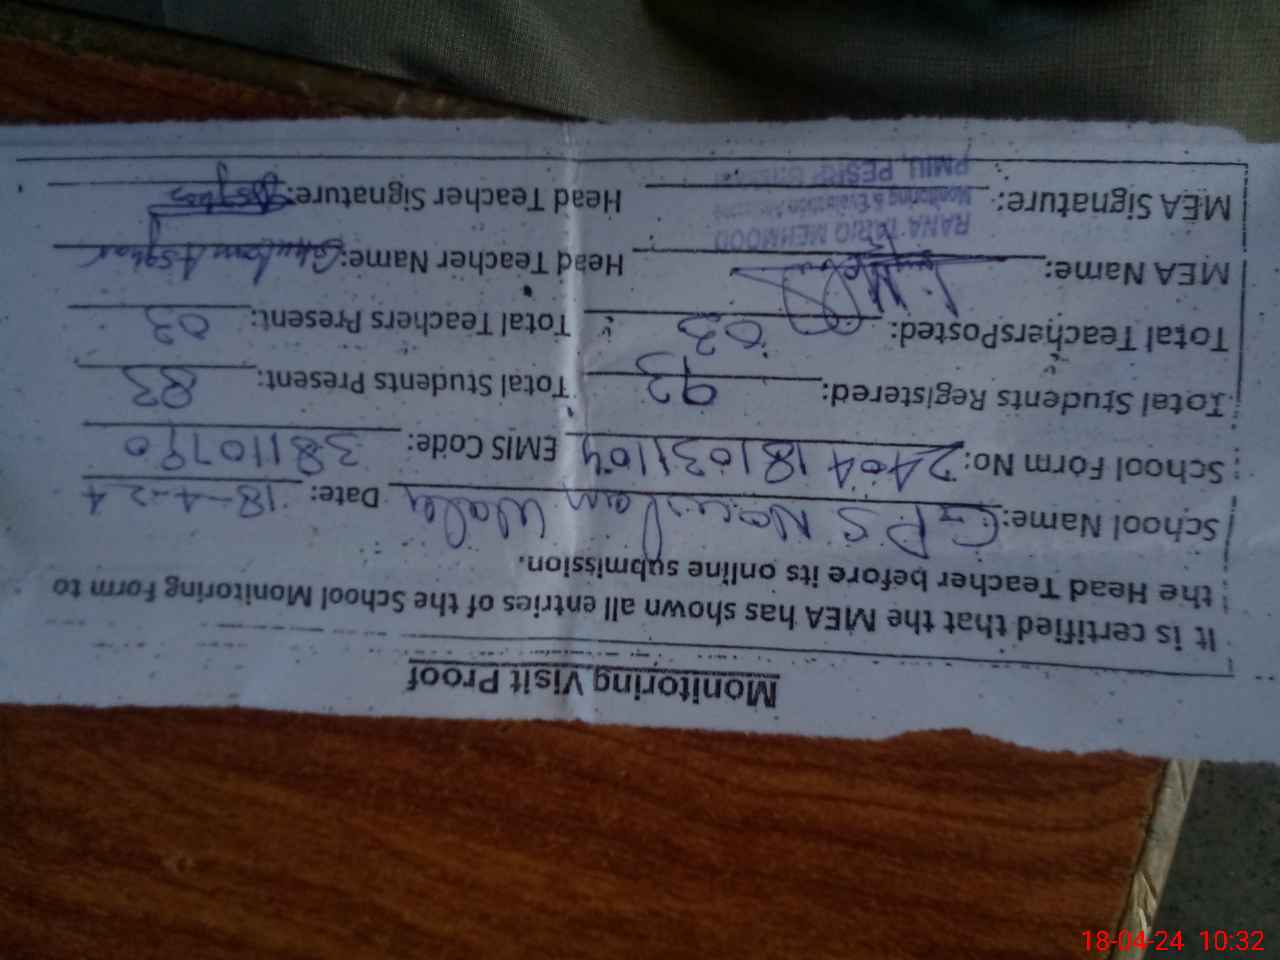 Monitoring Visit Proof
It is certified that the MEA has shown all entries of the School Monitoring Form to
the Head Teacher before its online submission.
School Name: G P S Wali Date: 18-4-24
School Form No: 2404181031104 EMIS Code: 38110790
Total Students Registered: 93 Total Students Present: 83
Total TeachersPosted: 03 Total Teachers Present: 03
MEA Name: Head Teacher Name: Ghulam Asghar
RANA TARIQ MEHMOOD
Monitoring & Evaluation
MEA Signature: Head Teacher Signature:
PMIU, PESRP
18-04-24 10:32